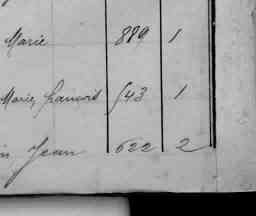 Marie 889 1
Marie, francois 543 1
n Jean 622 2